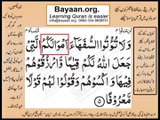 Bayaan.org.
Learning Quran is easier
info@bayaan.org
وَلَا تُؤْتُوا السُّفَهَاءَ أَمْوَالَكُمُ الَّتِي
جَعَلَ اللَّهُ لَكُمْ قِيَامًا وَارْزُقُوهُمْ
فِيهَا وَاكْسُوهُمْ وَقُولُوا لَهُمْ قَوْلًا
مَعْرُوفًا